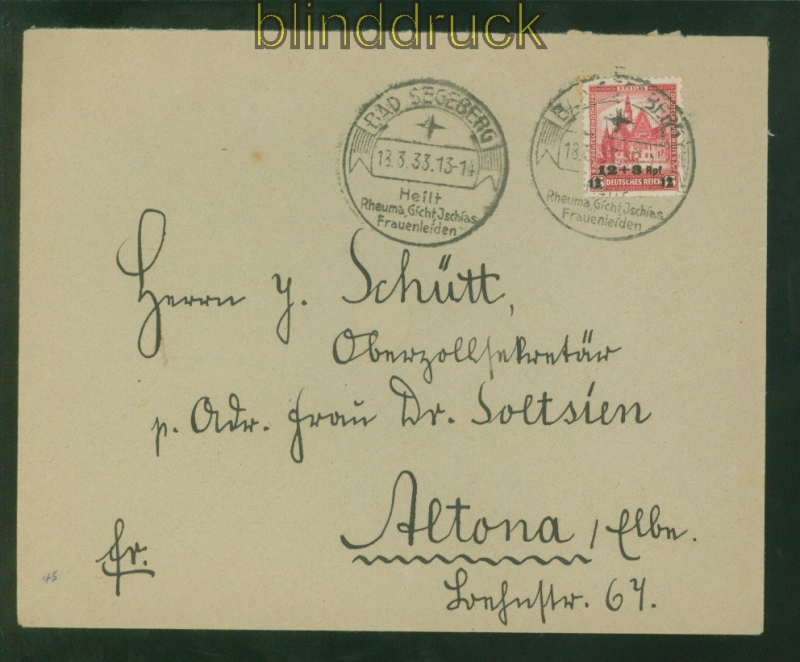 blinddruck
BAD SEGEBERG
18.3.33.13-14
Heilt
Rheuma, Gicht, Jschias
Frauenleiden
BERG
18.3
Rheuma, Gicht, Jschias
Frauenleiden
12+3 Rpf
12 12
DEUTSCHES REICH
Herrn J. Schütt,
Oberzollsekretär
p. Adr. Frau Dr. Soltsien
Altona / Elbe.
Fr.
45
67.